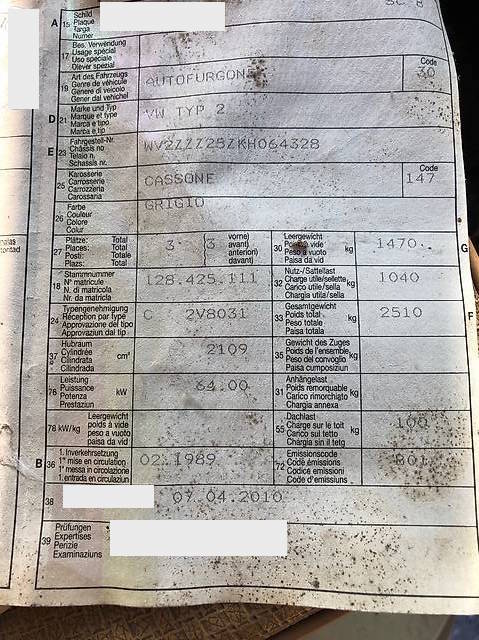 SC 8
A 15 Schild
Plaque
Targa
Numer
17 Bes. Verwendung
Usage spécial
Uso speciale
Diever spezial
19 Art des Fahrzeugs
Genre de véhicule
Genere di veicolo
Gener dal vehichel
AUTOFURGON
Code
30
D 21 Marke und Typ
Marque et type
Marca e tipo
Marca e tip
VW TYP 2
E 23 Fahrgestell-Nr.
Châssis no
Telaio n.
Schassis nr.
WV2ZZZ25ZKH064328
25 Karosserie
Carrosserie
Carrozzeria
Carossaria
CASSONE
Code
147
26 Farbe
Couleur
Colore
Colur
GRIGIO
27 Plätze: Total
Places: Total
Posti: Totale
Plazs: Total
3 (3 vorne)
avant)
anteriori)
davant)
30 Leergewicht
Poids à vide
Peso a vuoto
Paisa da vid
kg
1470.
G
18 Stammnummer
N° matricule
N. di matricola
Nr. da matricla
128.425.111
32 Nutz-/Sattellast
Charge utile/sellette
Carico utile/sella
Chargia utila/sella
kg
1040
24 Typengenehmigung
Réception par type
Approvazione del tipo
Approvaziun dal tip
C 2V8031
33 Gesamtgewicht
Poids total
Peso totale
Paisa totala
kg
2510
F
37 Hubraum
Cylindrée
Cilindrata
Cilindrada
cm³
2109
35 Gewicht des Zuges
Poids de l'ensemble
Peso del convoglio
Paisa cumposiziun
kg
76 Leistung
Puissance
Potenza
Prestaziun
kW
64.00
31 Anhängelast
Poids remorquable
Carico rimorchiato
Chargia annexa
kg
78 kW/kg
Leergewicht
poids à vide
peso a vuoto
paisa da vid
55 Dachlast
Charge sur le toit
Carico sul tetto
Chargia sin il tetg
kg
100
B 36 1. Inverkehrsetzung
1re mise en circulation
1a messa in circolazione
1. entrada en circulaziun
02.1989
72 Emissionscode
Code émissions
Codice emissioni
Code d'emissiuns
B01
38
07.04.2010
39 Prüfungen
Expertises
Perizie
Examinaziuns